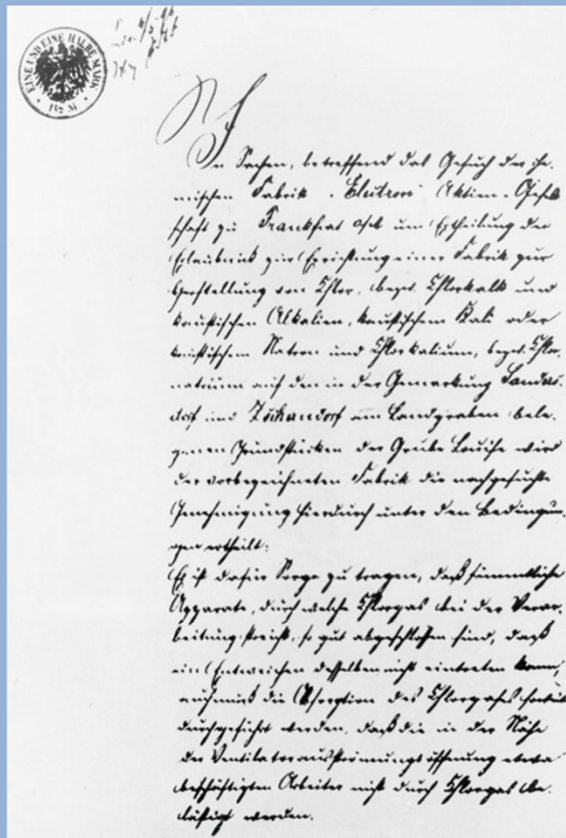 EINE UND EINE HALBE MARK
In Sachen, betreffend das Gesuch der che-
mischen Fabrik "Elektron" Aktien-Gesell-
schaft zu Frankfurt a/M um Ertheilung der
Erlaubniß zur Errichtung einer Fabrik zur
Herstellung von Chlor, bezw. Chlorkalk und
kaustischen Alkalien, kaustischem Kali oder
kaustischem Natron und Chlorkalium, bezw. Chlor-
natrium auf den in der Gemarkung Sanders-
dorf und Zscherndorf am Landgraben bele-
genen Grundstücken der Grube Louise wird
der vorbezeichneten Fabrik die nachgesuchte
Genehmigung hierdurch unter den Bedingun-
gen ertheilt:
Es ist dafür Sorge zu tragen, daß sämmtliche
Apparate, durch welche Chlorgas bei der Verar-
beitung streicht, so gut abgeschlossen sind, daß
ein Entweichen desselben nicht eintreten kann,
auch muß die Absorption des Chlorgases
durchgeführt werden, daß die in der Nähe
der Ventilatorausströmungsöffnung etwa
beschäftigten Arbeiter nicht durch Chlorgas be-
lästigt werden.